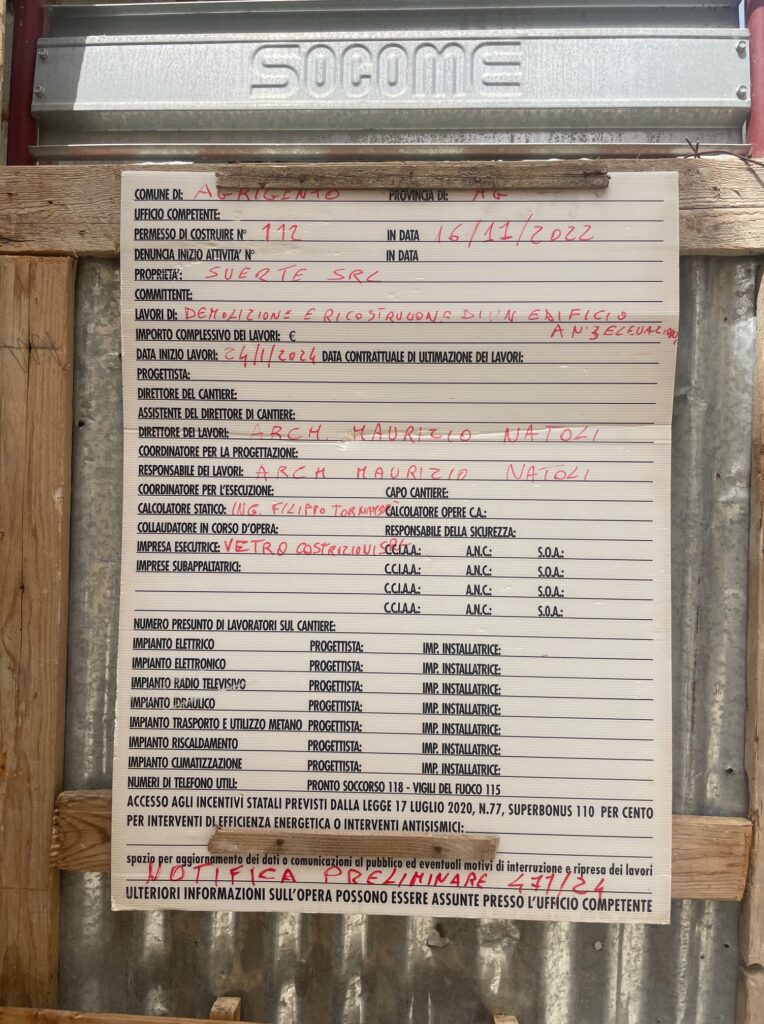 SOCOME
COMUNE DI: AGRIGENTO PROVINCIA DI: AG
UFFICIO COMPETENTE:
PERMESSO DI COSTRUIRE N° 112 IN DATA 16/11/2022
DENUNCIA INIZIO ATTIVITA' N° IN DATA
PROPRIETA': SUERTE SRL
COMMITTENTE:
LAVORI DI: DEMOLIZIONE E RICOSTRUZIONE DI UN EDIFICIO
A N. 3 ELEVAZIONI
IMPORTO COMPLESSIVO DEI LAVORI: €
DATA INIZIO LAVORI: 24/1/2024 DATA CONTRATTUALE DI ULTIMAZIONE DEI LAVORI:
PROGETTISTA:
DIRETTORE DEL CANTIERE:
ASSISTENTE DEL DIRETTORE DI CANTIERE:
DIRETTORE DEI LAVORI: ARCH. MAURIZIO NATOLI
COORDINATORE PER LA PROGETTAZIONE:
RESPONSABILE DEI LAVORI: ARCH MAURIZIO NATOLI
COORDINATORE PER L'ESECUZIONE: CAPO CANTIERE:
CALCOLATORE STATICO: ING. FILIPPO CALCOLATORE OPERE C.A.:
COLLAUDATORE IN CORSO D'OPERA: RESPONSABILE DELLA SICUREZZA:
IMPRESA ESECUTRICE: VETRO COSTRUZIONI SRL C.C.I.A.A.: A.N.C.: S.O.A.:
IMPRESE SUBAPPALTATRICI: C.C.I.A.A.: A.N.C.: S.O.A.:
C.C.I.A.A.: A.N.C.: S.O.A.:
C.C.I.A.A.: A.N.C.: S.O.A.:
NUMERO PRESUNTO DI LAVORATORI SUL CANTIERE:
IMPIANTO ELETTRICO PROGETTISTA: IMP. INSTALLATRICE:
IMPIANTO ELETTRONICO PROGETTISTA: IMP. INSTALLATRICE:
IMPIANTO RADIO TELEVISIVO PROGETTISTA: IMP. INSTALLATRICE:
IMPIANTO IDRAULICO PROGETTISTA: IMP. INSTALLATRICE:
IMPIANTO TRASPORTO E UTILIZZO METANO PROGETTISTA: IMP. INSTALLATRICE:
IMPIANTO RISCALDAMENTO PROGETTISTA: IMP. INSTALLATRICE:
IMPIANTO CLIMATIZZAZIONE PROGETTISTA: IMP. INSTALLATRICE:
NUMERI DI TELEFONO UTILI: PRONTO SOCCORSO 118 - VIGILI DEL FUOCO 115
ACCESSO AGLI INCENTIVI STATALI PREVISTI DALLA LEGGE 17 LUGLIO 2020, N.77, SUPERBONUS 110 PER CENTO
PER INTERVENTI DI EFFICIENZA ENERGETICA O INTERVENTI ANTISISMICI:
spazio per aggiornamento dei dati o comunicazioni al pubblico ed eventuali motivi di interruzione e ripresa dei lavori
NOTIFICA PRELIMINARE 471/24
ULTERIORI INFORMAZIONI SULL'OPERA POSSONO ESSERE ASSUNTE PRESSO L'UFFICIO COMPETENTE